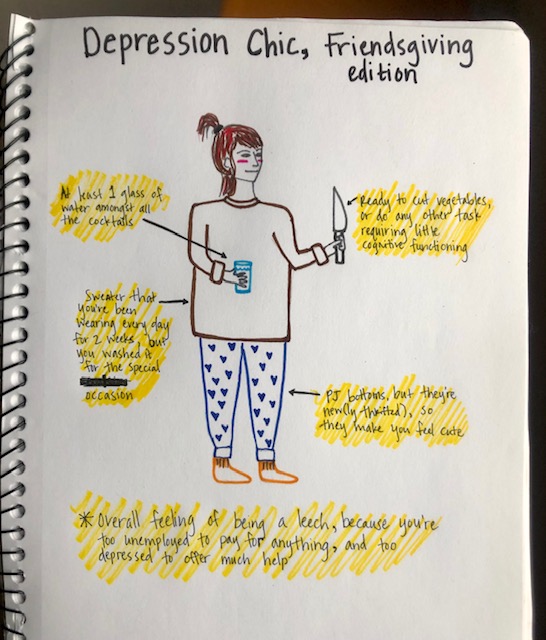 Depression Chic, Friendsgiving
edition
At least 1 glass of
water amongst all
the cocktails
Ready to cut vegetables,
or do any other task
requiring little
cognitive functioning
Sweater that
you've been
wearing every day
for 2 weeks, but
you washed it
for the special
occasion
PJ bottoms, but they're
new(ly thrifted), so
they make you feel cute
*Overall feeling of being a leech, because you're
too unemployed to pay for anything, and too
depressed to offer much help